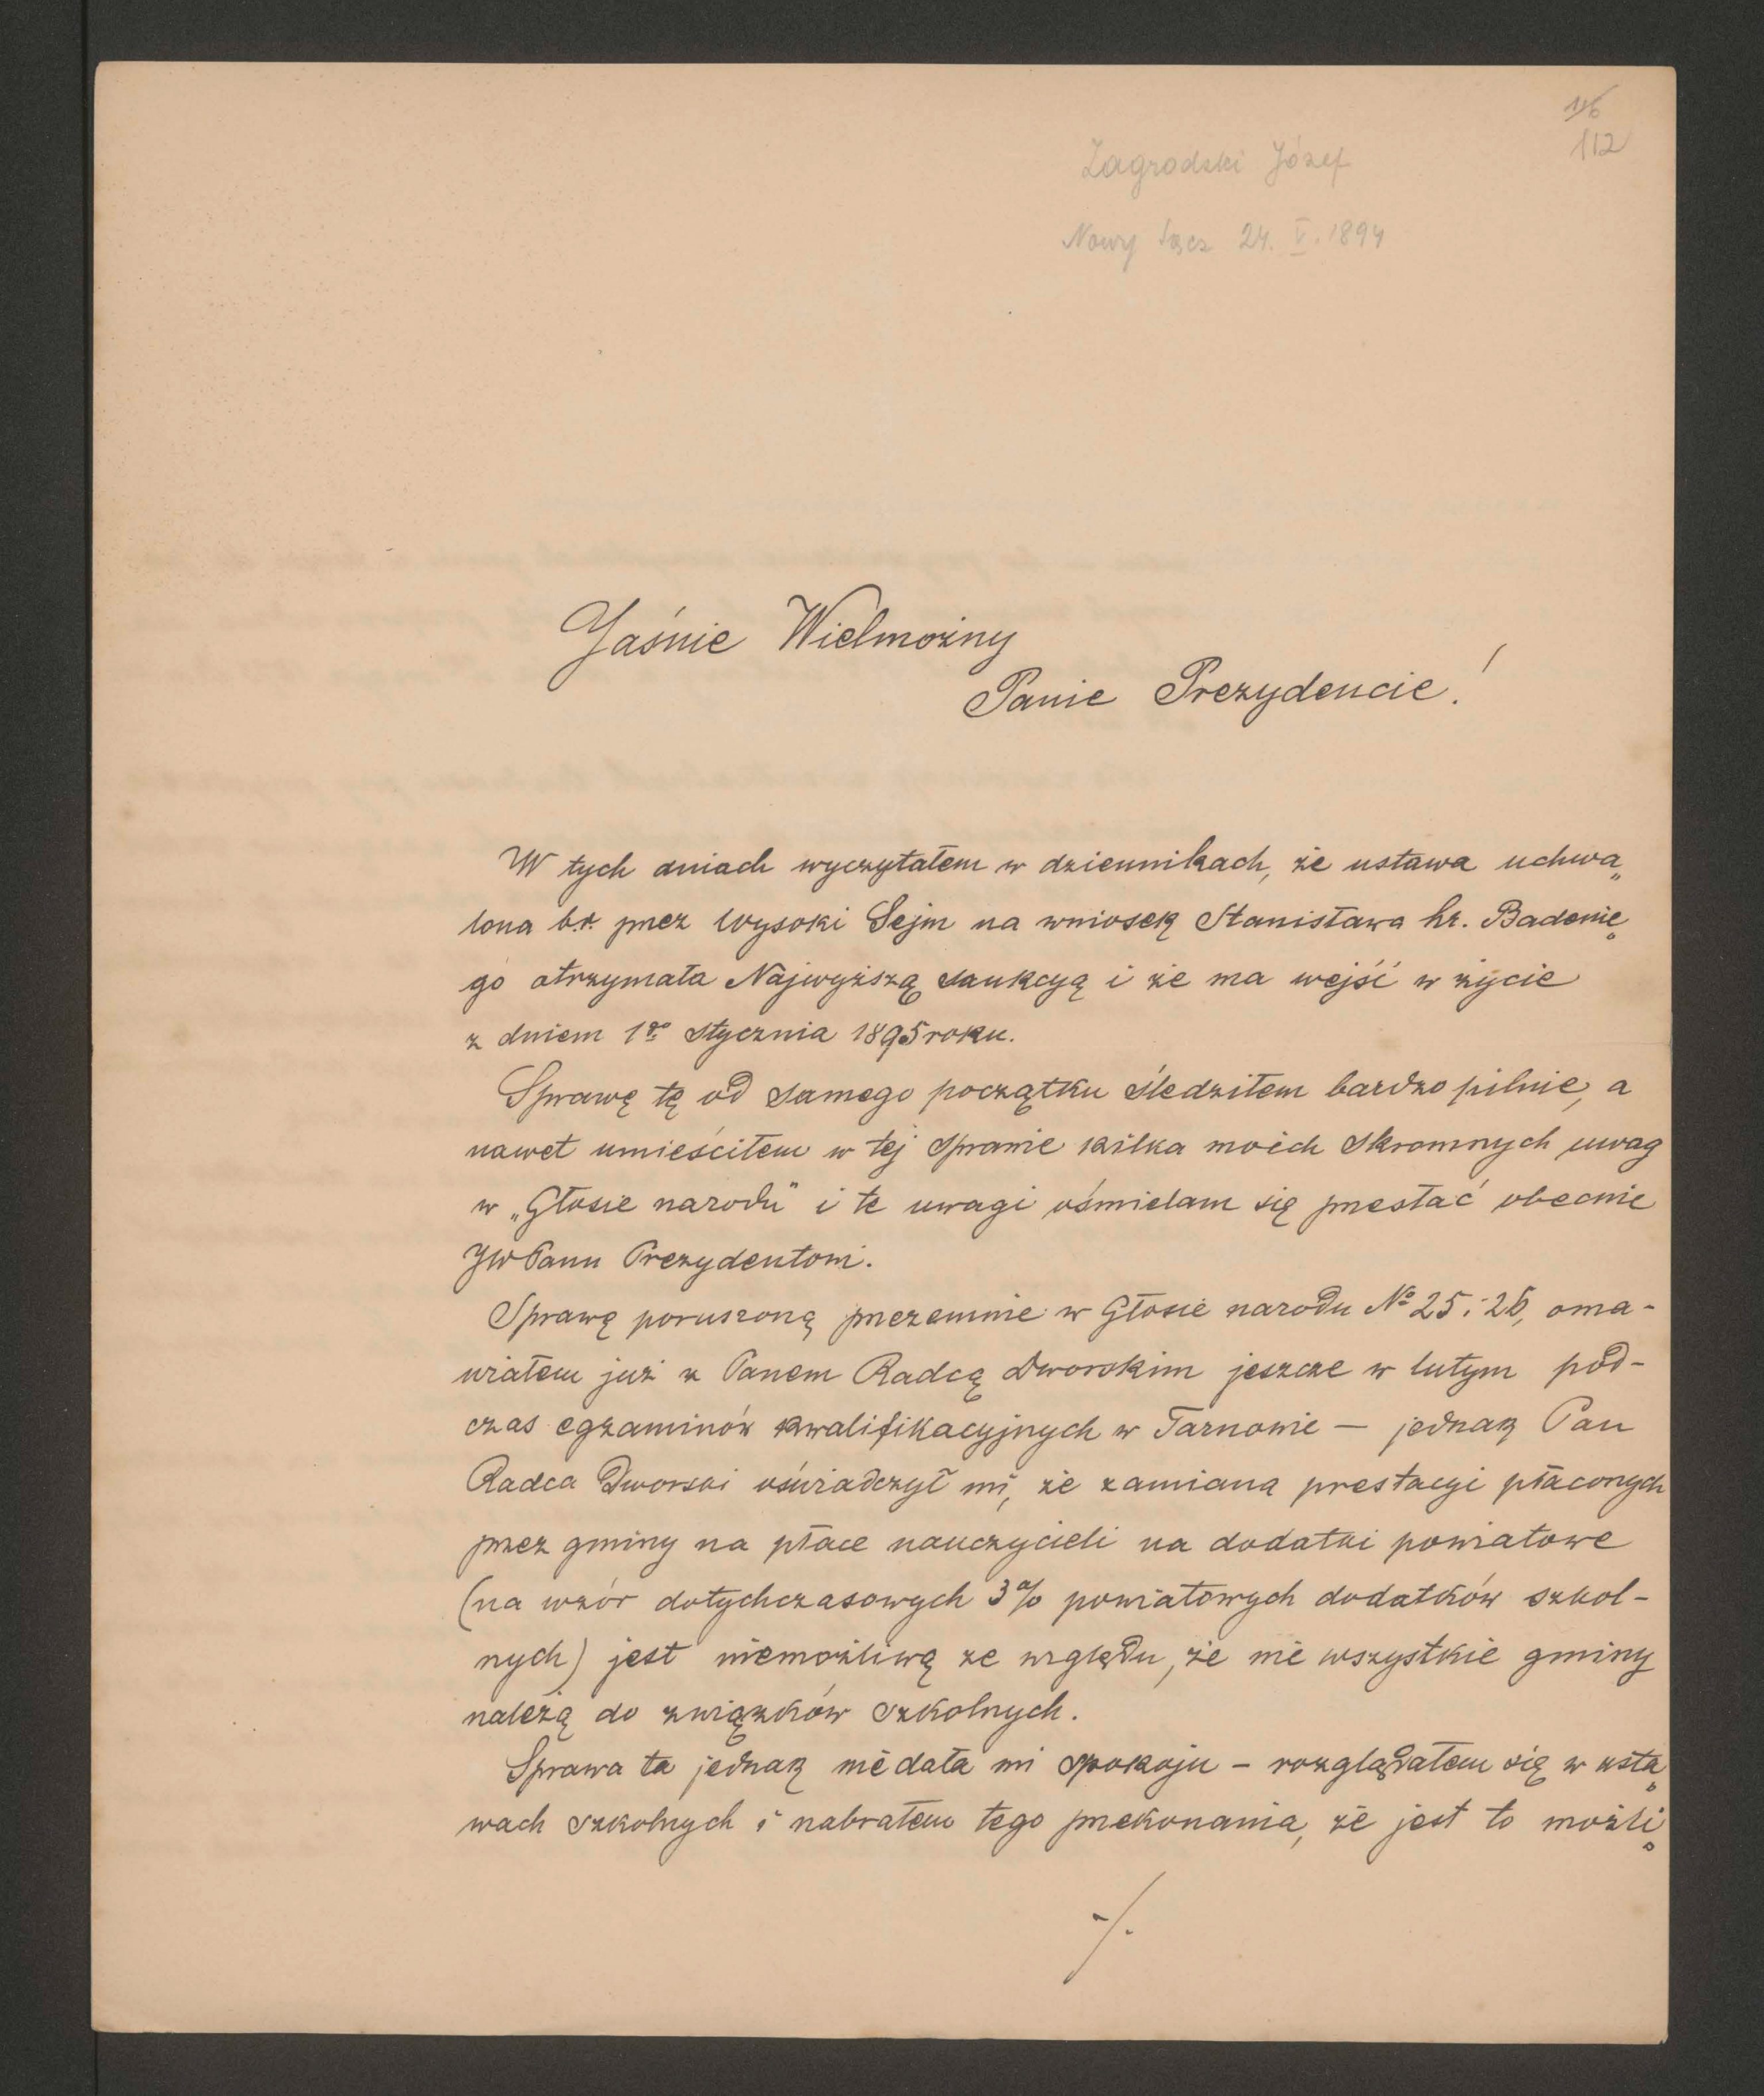 116
112
Zagrodzki Józef
Nowy Sącz 24. V. 1894
Jaśnie Wielmożny
Panie Prezydencie!
W tych dniach wyczytałem w dziennikach, że ustawa uchwa„
lona b.r. przez Wysoki Sejm na wniosek Stanisława hr. Badenie„
go otrzymała Najwyższą sankcyą i że ma wejść w życie
z dniem 1go stycznia 1895 roku.
Sprawę tę od samego początku śledziłem bardzo pilnie, a
nawet umieściłem w tej sprawie kilka moich skromnych uwag
w „Głosie narodu" i te uwagi ośmielam się przesłać obecnie
JWPanu Prezydentowi.
Sprawę poruszoną przezemnie w Głosie narodu No 25 i 26, oma-
wiałem już z Panem Radcą Dworskim jeszcze w lutym pod-
czas egzaminów kwalifikacyjnych w Tarnowie — jednak Pan
Radca Dworski oświadczył mi, że zamiana prestacyi płaconych
przez gminy na płace nauczycieli na dodatki powiatowe
(na wzór dotychczasowych 3% powiatowych dodatków szkol-
nych) jest niemożliwą ze względu, że nie wszystkie gminy
należą do związków szkolnych.
Sprawa ta jednak nie dała mi spokoju – rozglądałem się w usta„
wach szkolnych i nabrałem tego przekonania, że jest to możli„
./.